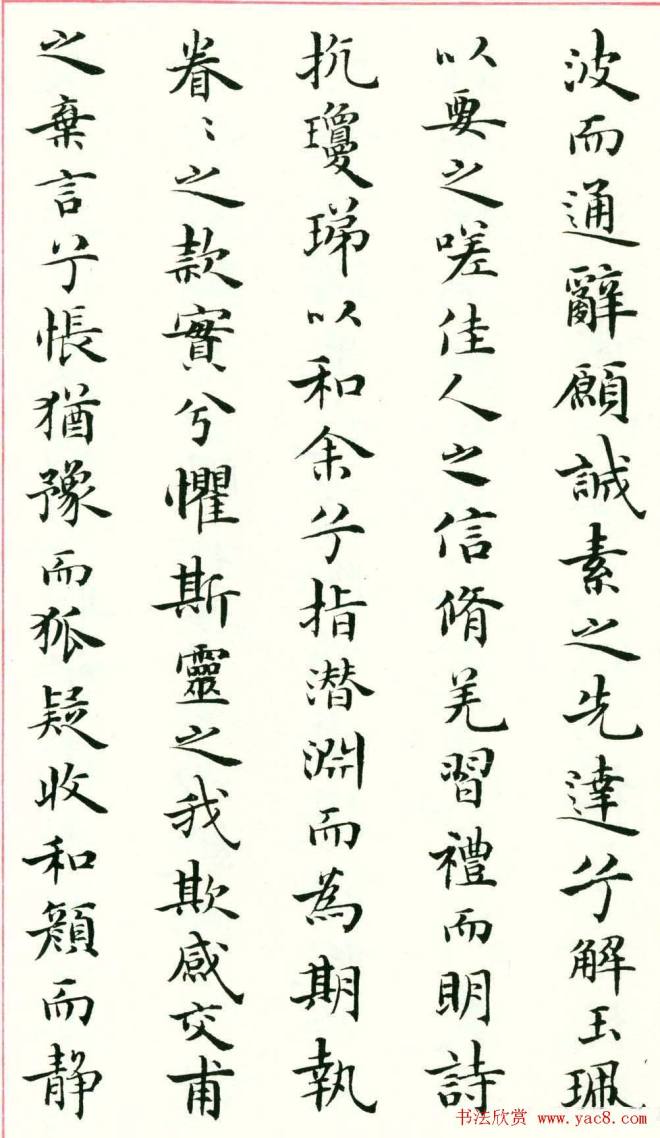 波而通辭願誠素之先達兮解玉珮
以要之嗟佳人之信脩羌習禮而明詩
抗瓊珶以和余兮指潛淵而為期執
眷〻之款實兮懼斯靈之我欺感交甫
之棄言兮悵猶豫而狐疑收和顏而靜
书法欣赏 www.yac8.com